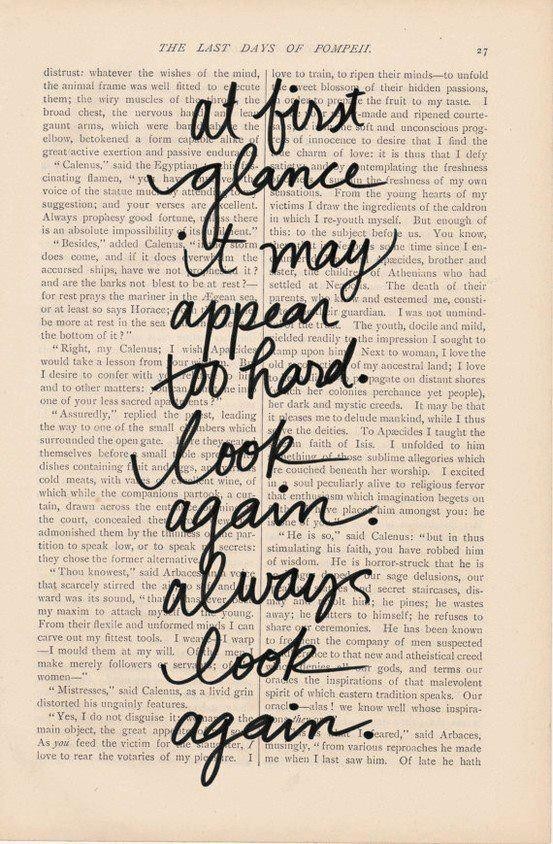 THE LAST DAYS OF POMPEII.
27
at first
glance
it may
appear
too hard.
look
again.
always
look
again.
distrust: whatever the wishes of the mind,
the animal frame was well fitted to execute
them; the wiry muscles of the
broad chest, the nervous
gaunt arms, which were the
elbow, betokened a form capable of
great active exertion and passive endurance.
"Calenus," said the Egyptian
cinating flamen, "you have
voice of the statue much
suggestion; and your verses are excellent.
Always prophesy good fortune, unless there
is an absolute impossibility
"Besides," added Calenus,
does come, and if it does overwhelm the
accursed ships, have we not it?
and are the barks not blest to be at rest?—
for rest prays the mariner in the Ægean sea,
or at least so says Horace;
be more at rest in the sea
the bottom of it?"
"Right, my Calenus; I wish Apæcides
would take a lesson from
I desire to confer with you
and to other matters: me in
one of your less sacred apartments?"
"Assuredly," replied the priest, leading
the way to one of the small chambers which
surrounded the open gate. they
themselves before small table spread
dishes containing fruit and eggs,
cold meats, with excellent wine, of
which while the companions partook, a cur-
tain, drawn across the
the court, concealed
admonished them by the thinness of the par-
tition to speak low, or to speak secrets:
they chose the former alternative.
"Thou knowest," said Arbaces,
that scarcely stirred the
ward was its sound, "that
my maxim to attach my young.
From their flexile and unformed minds I can
carve out my fittest tools. I warp
—I mould them at my will. Of men
make merely followers servants; of
women—"
"Mistresses," said Calenus, as a livid grin
distorted his ungainly features.
"Yes, I do not disguise it: the
main object, the great
As you feed the victim for the slaughter, I
love to rear the votaries of my pleasure. I
love to train, to ripen their minds—to unfold
the sweet blossom of their hidden passions,
the fruit to my taste. I
made and ripened courte-
soft and unconscious prog-
of innocence to desire that I find the
charm of love: it is thus that I defy
contemplating the freshness
the freshness of my own
sensations. From the young hearts of my
victims I draw the ingredients of the caldron
in which I re-youth myself. But enough of
this: to the subject before us. You know,
time since I en-
Apæcides, brother and
children of Athenians who had
settled at The death of their
parents, who and esteemed me, consti-
guardian. I was not unmind-
of the The youth, docile and mild,
yielded readily to the impression I sought to
stamp upon him. Next to woman, I love the
old of my ancestral land; I love
propagate on distant shores
her colonies perchance yet people),
her dark and mystic creeds. It may be that
it pleases me to delude mankind, while I thus
the deities. To Apæcides I taught the
faith of Isis. I unfolded to him
something of those sublime allegories which
are couched beneath her worship. I excited
in a soul peculiarly alive to religious fervor
that enthusiasm which imagination begets on
place him amongst you: he
is one of
"He is so," said Calenus: "but in thus
stimulating his faith, you have robbed him
of wisdom. He is horror-struck that he is
our sage delusions, our
and secret staircases, dis-
him; he pines; he wastes
away; he mutters to himself; he refuses to
share our ceremonies. He has been known
to frequent the company of men suspected
to that new and atheistical creed
which denies all our gods, and terms our
oracles the inspirations of that malevolent
spirit of which eastern tradition speaks. Our
oracles—alas! we know well whose inspira-
feared," said Arbaces,
musingly, "from various reproaches he made
me when I last saw him. Of late he hath